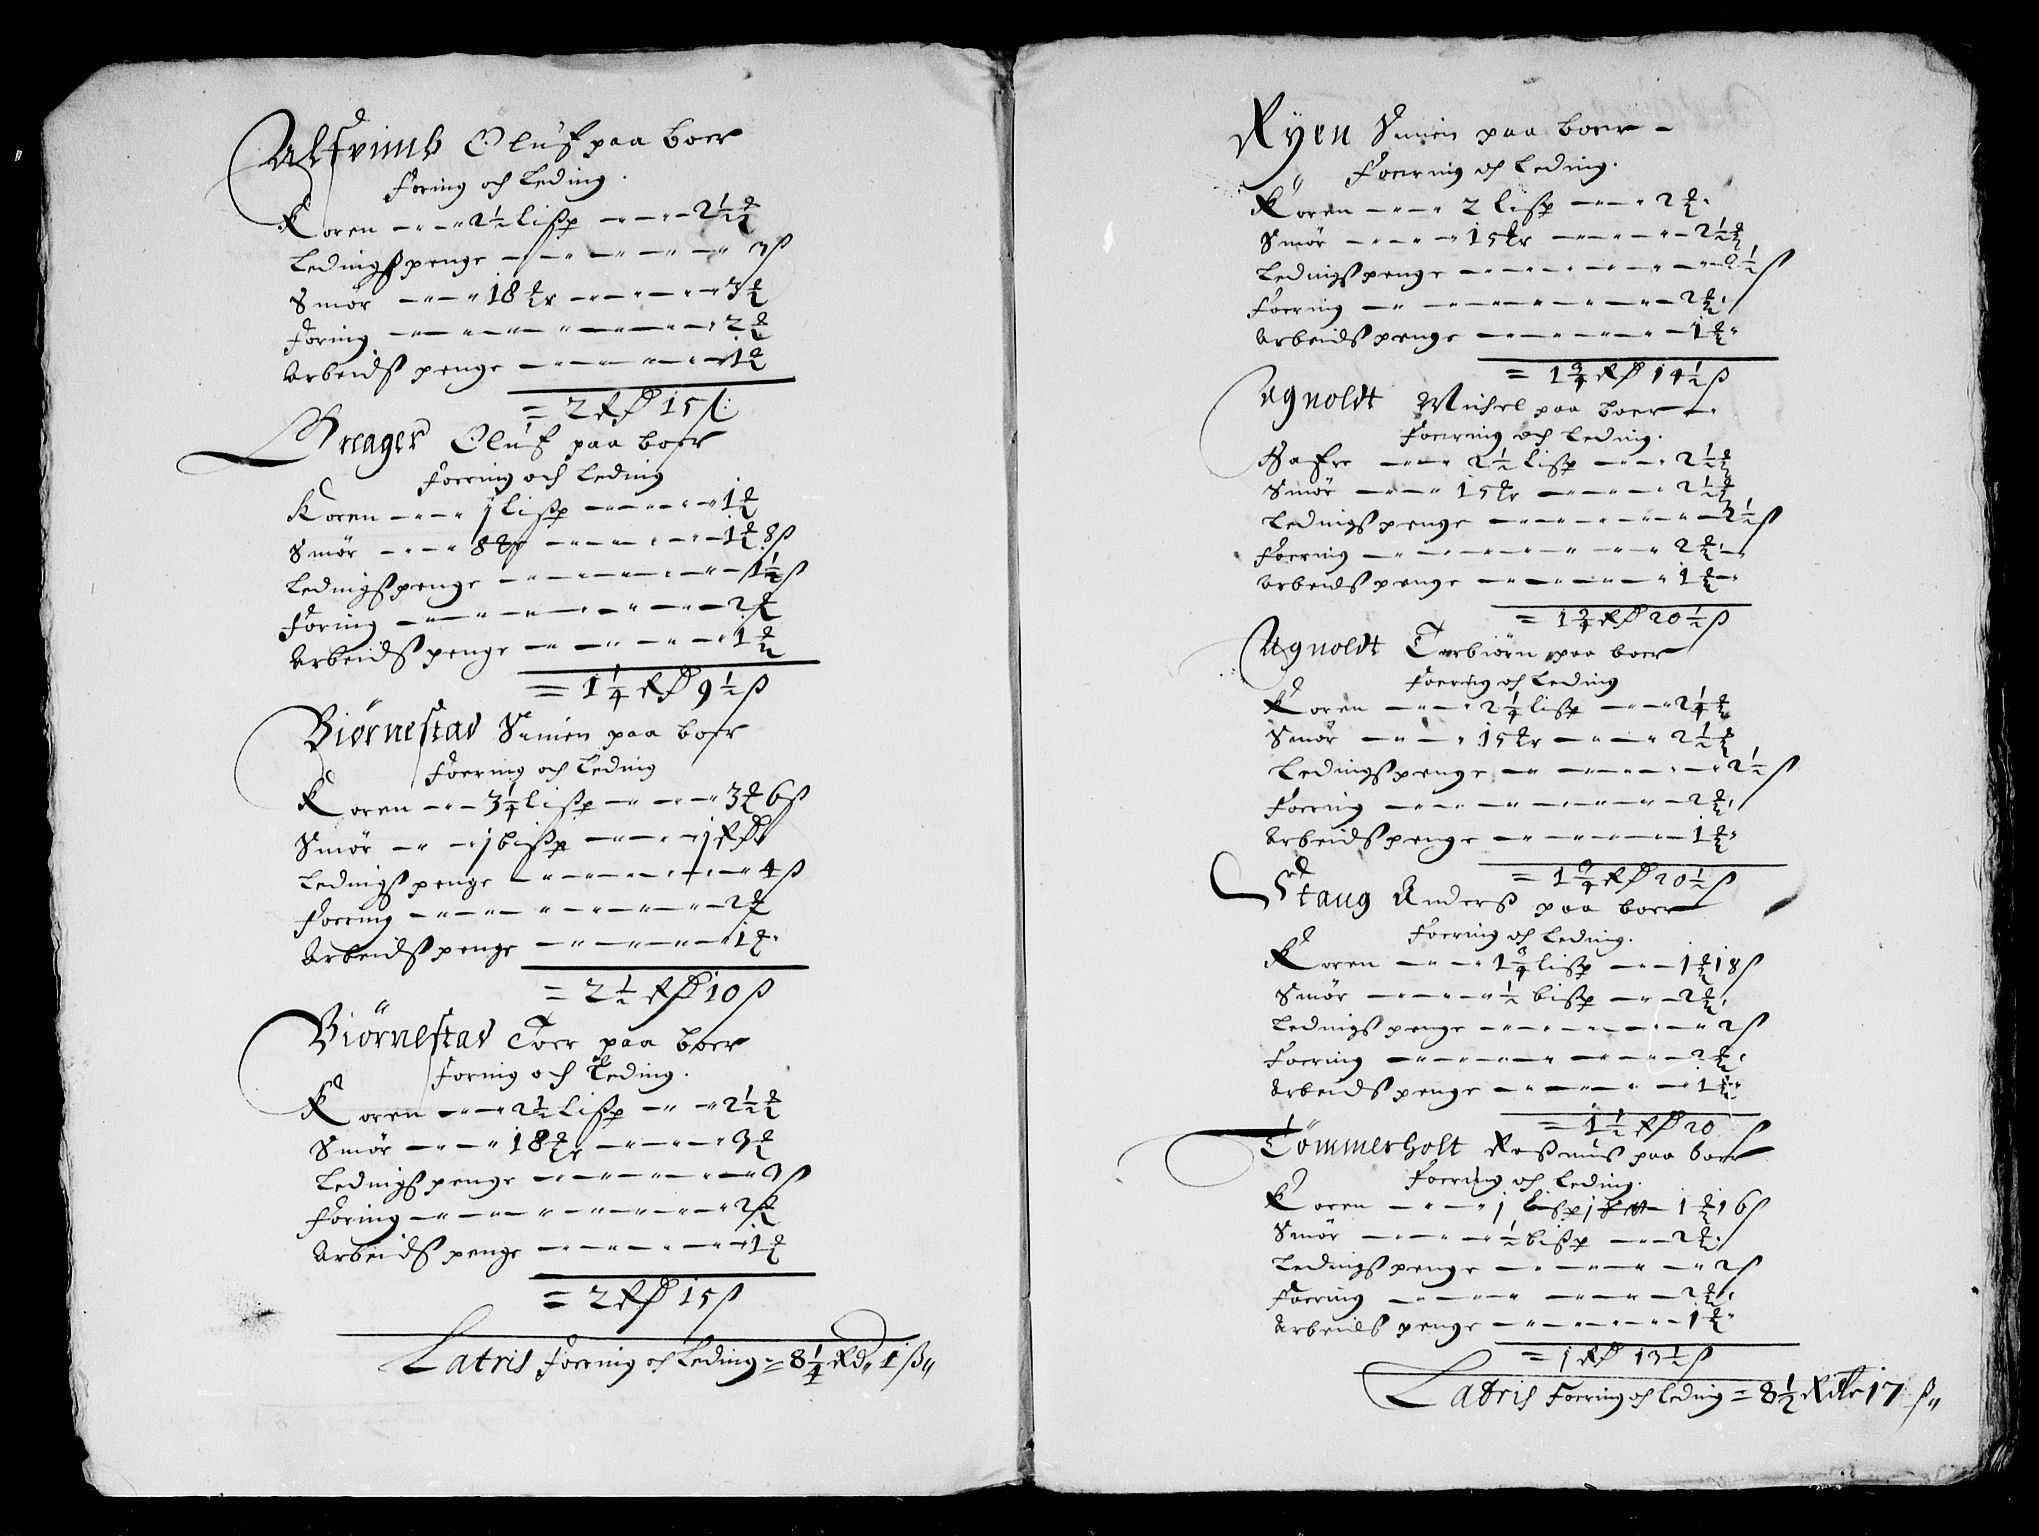 Alfvimb Oluf paa boer
Foring och Leding.
Koren 2½ lisp 2½ ℔
Ledingspenge 3 ß
Smør 18 ℔r 3 ℔
Foring 2 ℔
Arbeidspenge 1 ℔
= 2 Rd 15 ß
Breager Oluf paa boer
Foering och Leding
Koren j lisp 1 ℔
Smør 8 ℔r 1 ℔ 8 ß
Ledingspenge 1½ ß
Foring 2 ℔
Arbeidspenge 1 ℔
= 1¼ Rd 9½ ß
Biørnestad Simen paa boer
Foering och Leding
Koren 3¼ lisp 3 ℔ 6 ß
Smør j bisp j Rd
Ledingspenge 4 ß
Foering 2 ℔
Arbeidspenge 1 ℔
= 2½ Rd 10 ß
Biørnestad Toer paa boer
Foring och Leding.
Koren 2½ lisp 2½ ℔
Smør 18 ℔r 3 ℔
Ledingspenge 3 ß
Foring 2 ℔
Arbeidspenge 1 ℔
= 2 Rd 15 ß
Latris Foering och Leding = 8¼ Rd 1 ß
Ryen Simen paa boer
Foering och Leding.
Koren 2 lisp 2 ℔
Smør 15 ℔r 2½ ℔
Ledingspenge 2½ ß
Foering 2 ℔
Arbeidspenge 1 ℔
= 1¾ Rd 14½ ß
Ugnoldt Michel paa boer
Foering och Leding.
Hafre 2½ lisp 2½ ℔
Smør 15 ℔r 2½ ℔
Ledingspenge 2½ ß
Foering 2 ℔
Arbeidspenge 1 ℔
= 1¾ Rd 20½ ß
Ugnoldt Torbiørn paa boer
Foering och Leding
Koren 2¼ lisp 2¼ ℔
Smør 15 ℔r 2½ ℔
Ledingspenge 2½ ß
Foering 2 ℔
Arbeidspenge 1 ℔
= 1¾ Rd 20½ ß
Staug Anderß paa boer
Foering och Leding.
Koren 1¾ lisp 1 ℔ 18 ß
Smør ½ bisp 2 ℔
Ledingspenge 2 ß
Foering 2 ℔
Arbeidspenge 1 ℔
= 1½ Rd 20 ß
Tömmerholt Rasmus paa boer
Foering och Leding.
Koren j lisp j 1 ℔ 16 ß
Smør ½ bisp 2 ℔
Ledingspenge 2 ß
Foering 2 ℔
Arbeids penge 1 ℔
= j Rd 13½ ß
Latris Foering och Leding = 8½ Rdlr 17 ß